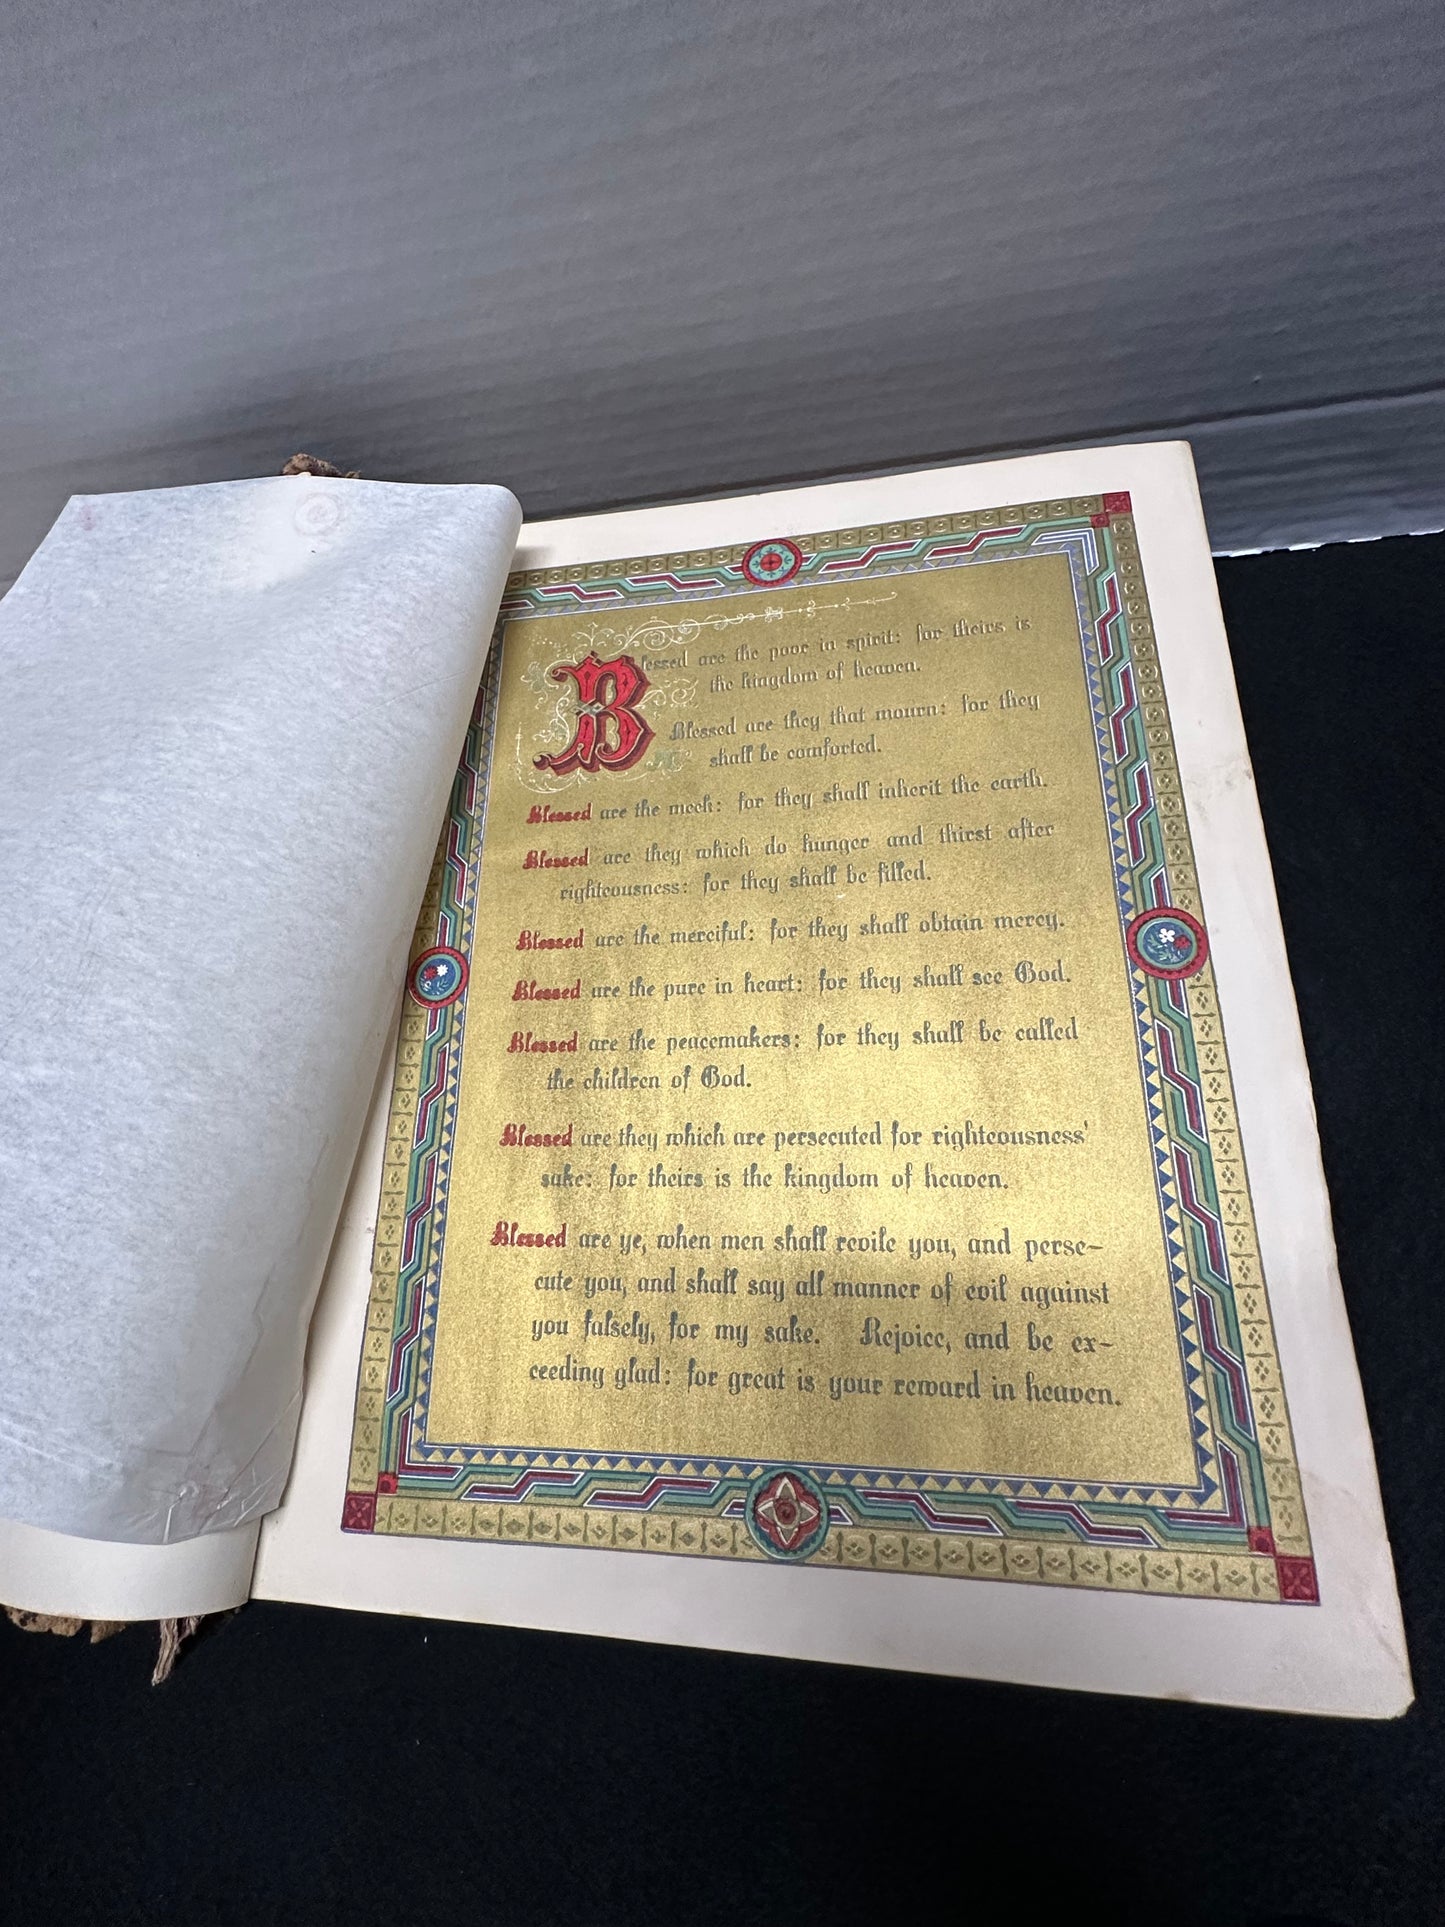 Blessed are the poor in spirit: for theirs is
the kingdom of heaven.
Blessed are they that mourn: for they
shall be comforted.
Blessed are the meek: for they shall inherit the earth.
Blessed are they which do hunger and thirst after
righteousness: for they shall be filled.
Blessed are the merciful: for they shall obtain mercy.
Blessed are the pure in heart: for they shall see God.
Blessed are the peacemakers: for they shall be called
the children of God.
Blessed are they which are persecuted for righteousness'
sake: for theirs is the kingdom of heaven.
Blessed are ye, when men shall revile you, and perse-
cute you, and shall say all manner of evil against
you falsely, for my sake. Rejoice, and be ex-
ceeding glad: for great is your reward in heaven.